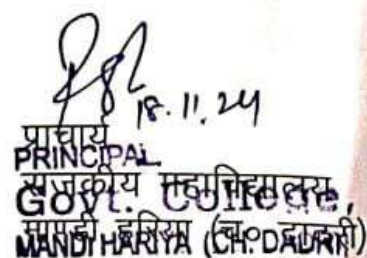 18.11.24
प्राचार्य
PRINCIPAL
राजकीय महाविद्यालय
Govt. College,
MANDI HARIYA (CH. DADRI)